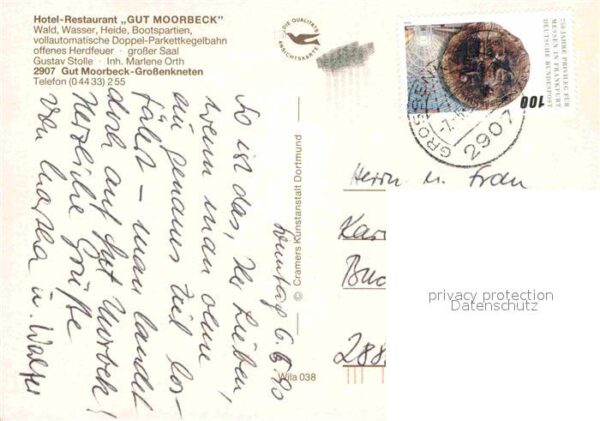 Hotel-Restaurant „GUT MOORBECK"
Wald, Wasser, Heide, Bootspartien,
vollautomatische Doppel-Parkettkegelbahn
offenes Herdfeuer · großer Saal
Gustav Stolle · Inh. Marlene Orth
2907 Gut Moorbeck-Großenkneten
Telefon (0 44 33) 2 55
DIE QUALITÄTS
ANSICHTSKARTE
750 JAHRE PRIVILEG FÜR
MESSEN IN FRANKFURT
DEUTSCHE BUNDESPOST
100
2907
© Cramers Kunstanstalt Dortmund
Wila 038
Sonntag 6. 5. 90
So ist das, Ihr Lieben,
wenn man ohne
ein genaues Ziel los-
fährt – man landet
doch auf Gut Moorbeck!
Herzliche Grüße
von u. Walter
Herrn u. Frau
Kar
Buc
288
privacy protection
Datenschutz